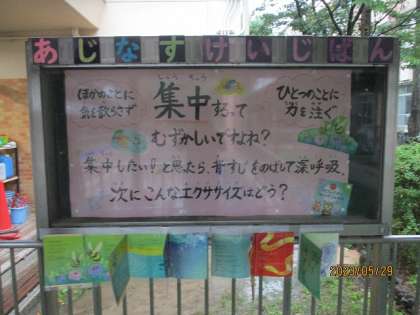 あじなすけいじばん
しゅう ちゅう
ほかのことに
気を散らさず
集中するって
ひとつのことに
力を注ぐ
むずかしいですよね?
集中したい!と思ったら、背すじをのばして深呼吸、
次にこんなエクササイズはどう?
2023/05/29